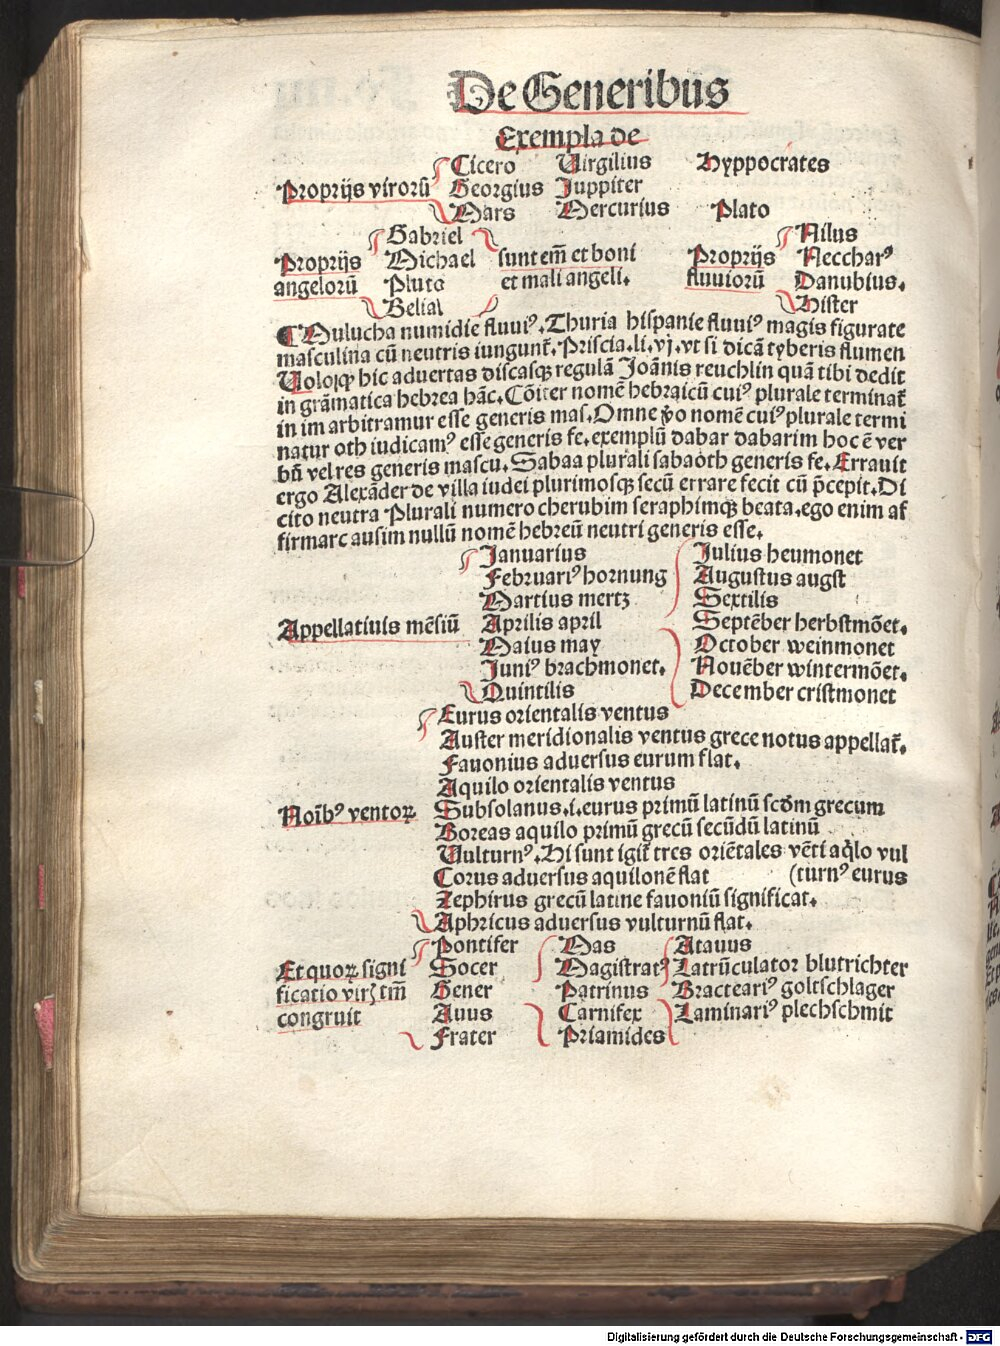 De Generibus
Exempla de
Cicero Uirgilius Hyppocrates
Proprijs viroꝝ Georgius Juppiter
Mars Mercurius Plato
Gabriel Nilus
Proprijs Michael sunt em̄ et boni Proprijs Necchar⁹
angelorū Pluto et mali angeli. fluuiorū Danubius.
Belial Hister
¶ Mulucha numidie fluui⁹. Thuria hispanie fluui⁹ magis figurate
masculina cū neutris iungunt̄. Priscia. li. vj. vt si dicā tyberis flumen
Uoloqꝫ hic aduertas discasqꝫ regulā Joānis reuchlin quā tibi dedit
in grāmatica hebrea hāc. Cōiter nomē hebraicū cui⁹ plurale terminat̄
in im arbitramur esse generis mas. Omne ꝟo nomē cui⁹ plurale termi
natur oth iudicam⁹ esse generis fe. exemplū dabar dabarim hoc ē ver
bū vel res generis mascu. Sabaa plurali sabaoth generis fe. Errauit
ergo Alexāder de villa iudei plurimosqꝫ secū errare fecit cū p̄cepit. Di
cito neutra Plurali numero cherubim seraphimqꝫ beata. ego enim af
firmare ausim nullū nomē hebreū neutri generis esse.
Januarius Julius heumonet
Februari⁹ hornung Augustus augst
Martius mertz Sextilis
Appellatiuis mēsiū Aprilis april Septēber herbstmōet.
Maius may October weinmonet
Juni⁹ brachmonet. Nouēber wintermōet.
Quintilis December cristmonet
Eurus orientalis ventus
Auster meridionalis ventus grece notus appellat̄.
Fauonius aduersus eurum flat.
Aquilo orientalis ventus
Noīb⁹ ventoꝝ Subsolanus. i. eurus primū latinū scd̄m grecum
Boreas aquilo primū grecū secūdū latinū
Uulturn⁹. Hi sunt igit̄ tres oriētales vēti aq̇lo vul
Corus aduersus aquilonē flat (turn⁹ eurus
Zephirus grecū latine fauoniū significat.
Aphricus aduersus vulturnū flat.
Pontifer Mas Atauus
Et quoꝝ signi Socer Magistrat⁹ Latrūculator blutrichter
ficatio virꝫ tm̄ Gener Patrinus Bracteari⁹ goltschlager
congruit Auus Carnifex Laminari⁹ plechschmit
Frater Priamides
Digitalisierung gefördert durch die Deutsche Forschungsgemeinschaft - DFG